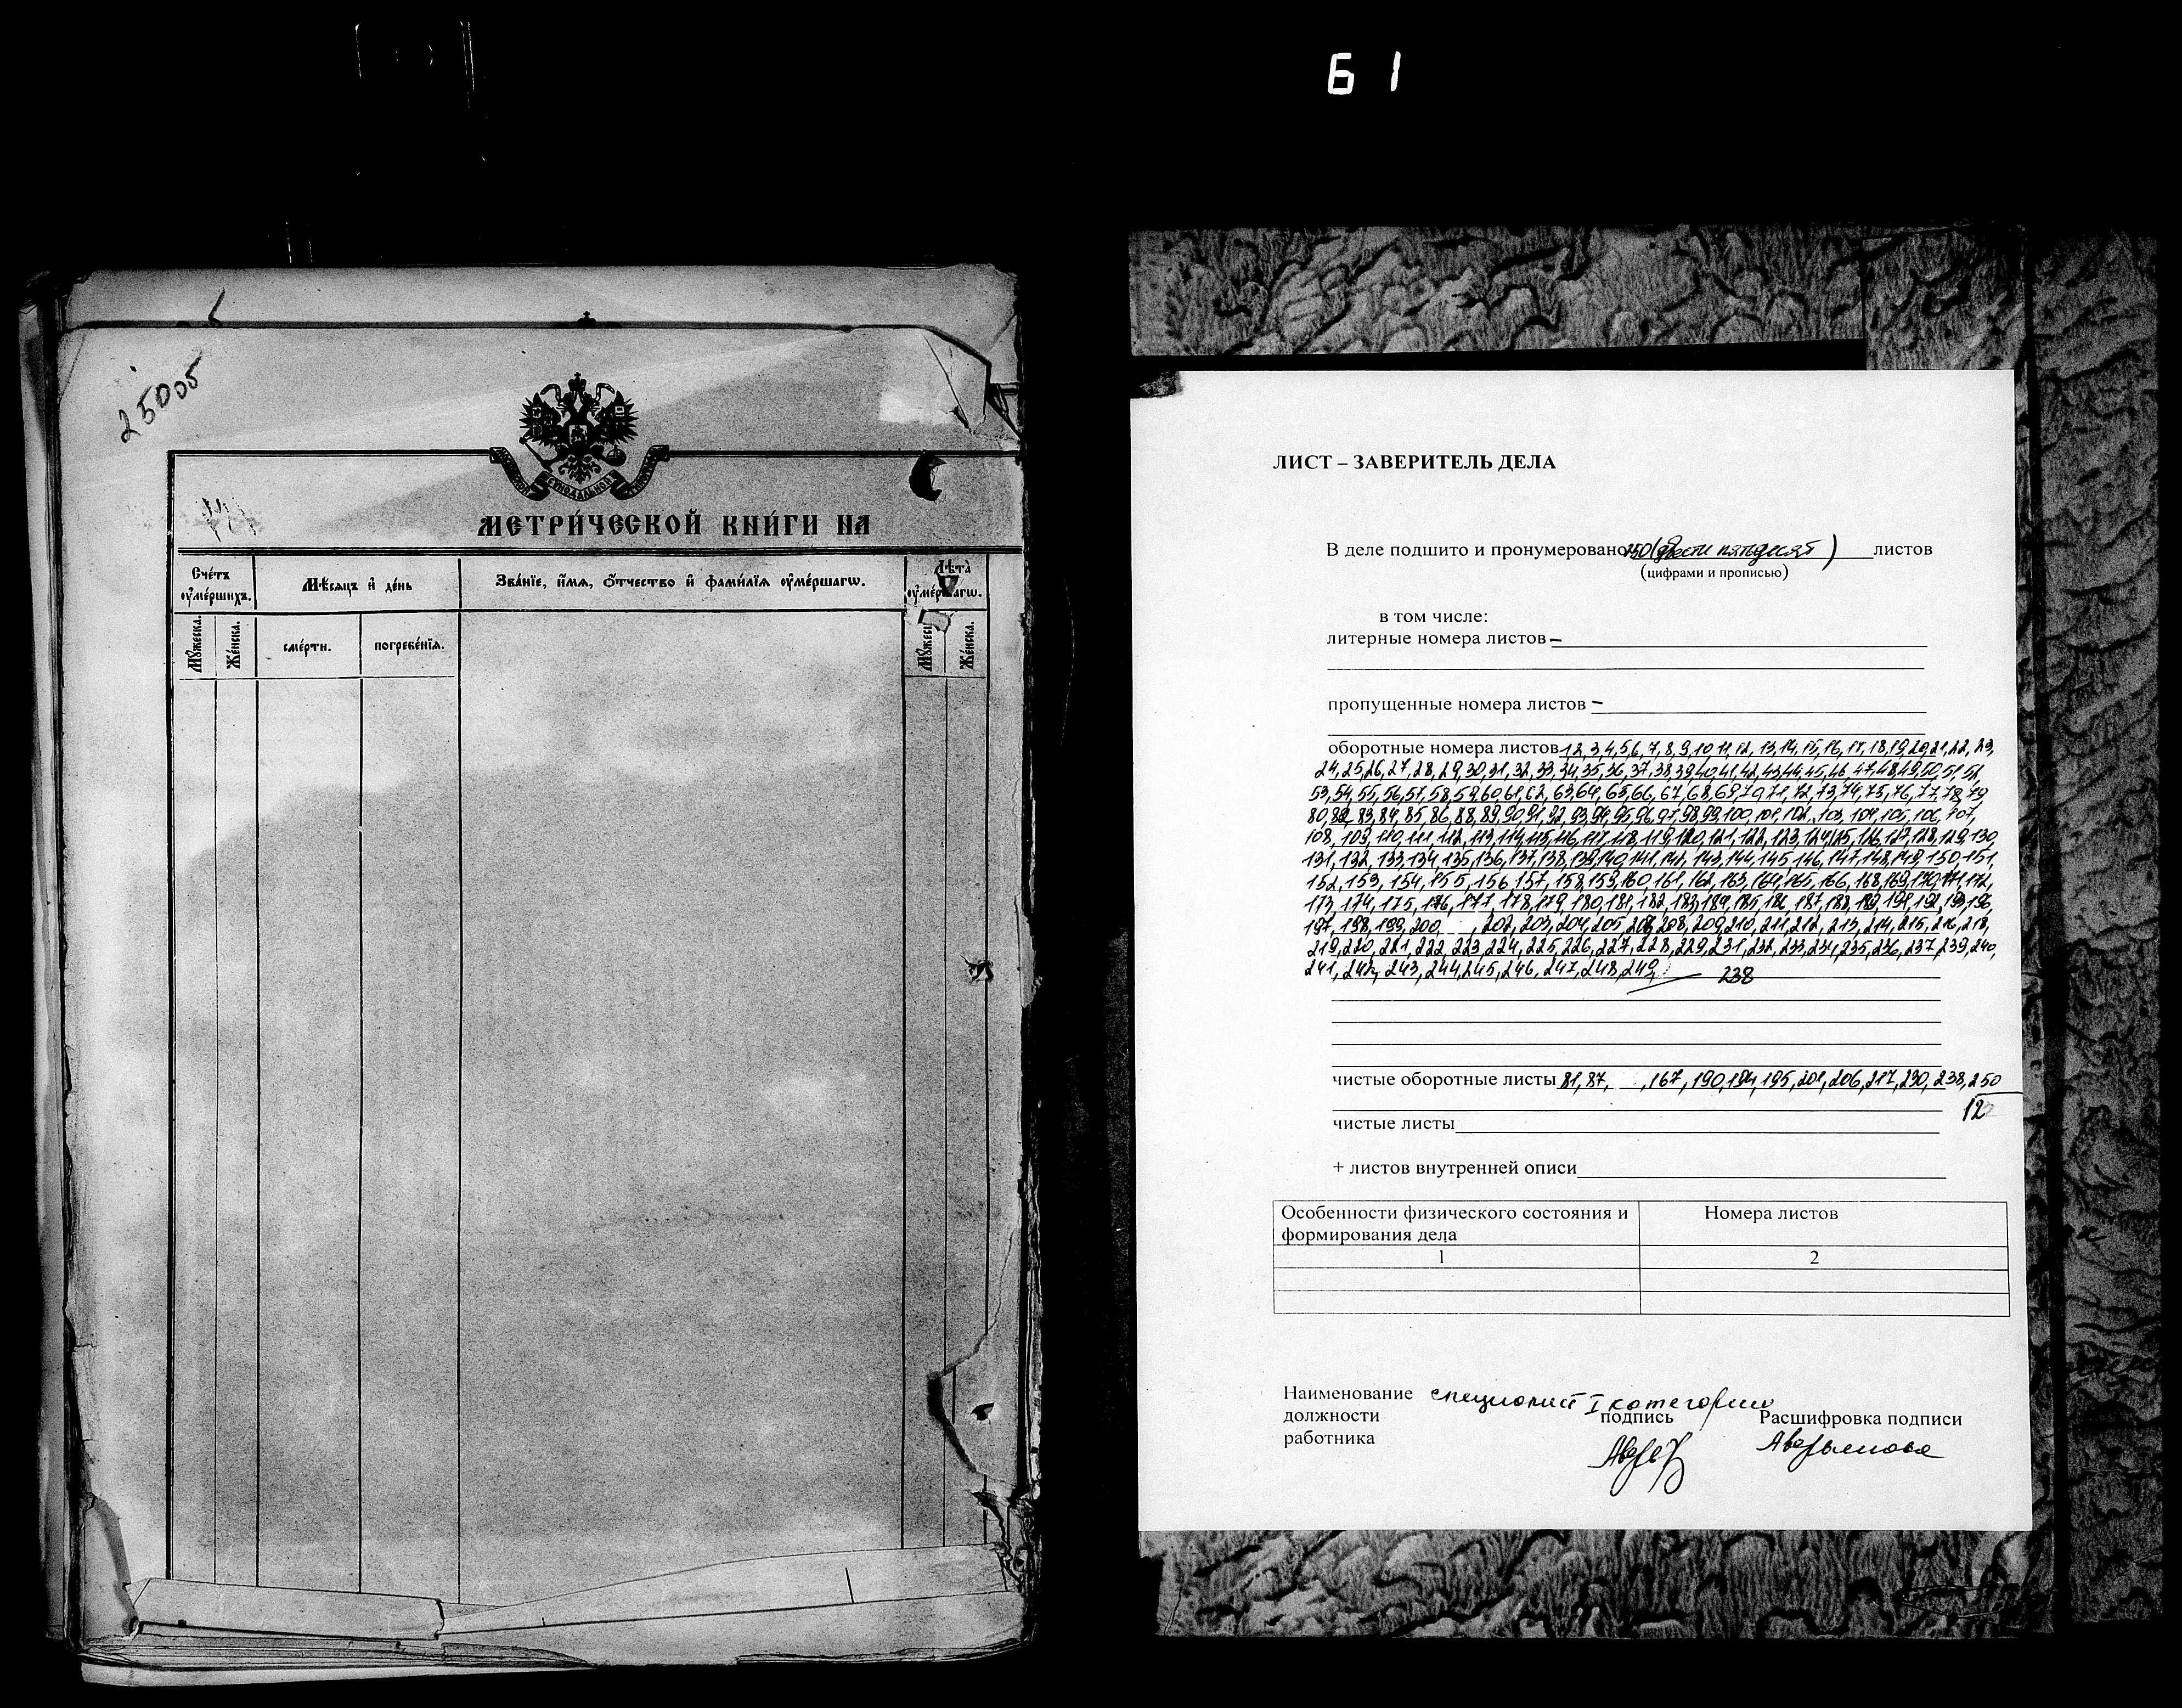 Б 1
250об
СѴНОДАЛЬНОЙ
МЕТРИ́ЧЕСКОЙ КНИ́ГИ НА
Сче́тъ ᲂу҆ме́ршихъ.
Мѣ́сяцъ и҆ де́нь
Зва́нїе, и҆́мя, ѻ҆́тчество и҆ фами́лїя ᲂу҆ме́ршагѡ.
Лѣ̑та ᲂу҆ме́ршагѡ.
Мꙋ́жеска.
Же́нска.
сме́рти.
погребе́нїя.
Мꙋ́жеск
Же́нска.
ЛИСТ – ЗАВЕРИТЕЛЬ ДЕЛА
В деле подшито и пронумеровано 250 (двести пятьдесят) листов
(цифрами и прописью)
в том числе:
литерные номера листов –
пропущенные номера листов –
оборотные номера листов 1,2,3,4,5,6,7,8,9,10,11,12,13,14,15,16,17,18,19,20,21,22,23,
24,25,26,27,28,29,30,31,32,33,34,35,36,37,38,39,40,41,42,43,44,45,46,47,48,49,50,51,52,
53,54,55,56,57,58,59,60,61,62,63,64,65,66,67,68,69,70,71,72,73,74,75,76,77,78,79
80,82,83,84,85,86,88,89,90,91,92,93,94,95,96,97,98,99,100,101,102,103,104,105,106,107,
108,109,110,111,112,113,114,115,116,117,118,119,120,121,122,123,124,125,126,127,128,129,130,
131,132,133,134,135,136,137,138,139,140,141,142,143,144,145,146,147,148,149,150,151,
152,153,154,155,156,157,158,159,160,161,162,163,164,165,166,168,169,170,171,172,
173,174,175,176,177,178,179,180,181,182,183,184,185,186,187,188,189,191,192,193,196,
197,198,199,200,,202,203,204,205,207,208,209,210,211,212,213,214,215,216,218,
219,220,221,222,223,224,225,226,227,228,229,231,232,233,234,235,236,237,239,240,
241,242,243,244,245,246,247,248,249, 238
чистые оборотные листы 81,87,,167,190,194,195,201,206,217,230,238,250
12
чистые листы
+ листов внутренней описи
Особенности физического состояния и формирования дела
Номера листов
1
2
Наименование специалист I категории
должности
подпись
Расшифровка подписи
работника
Аверьянова